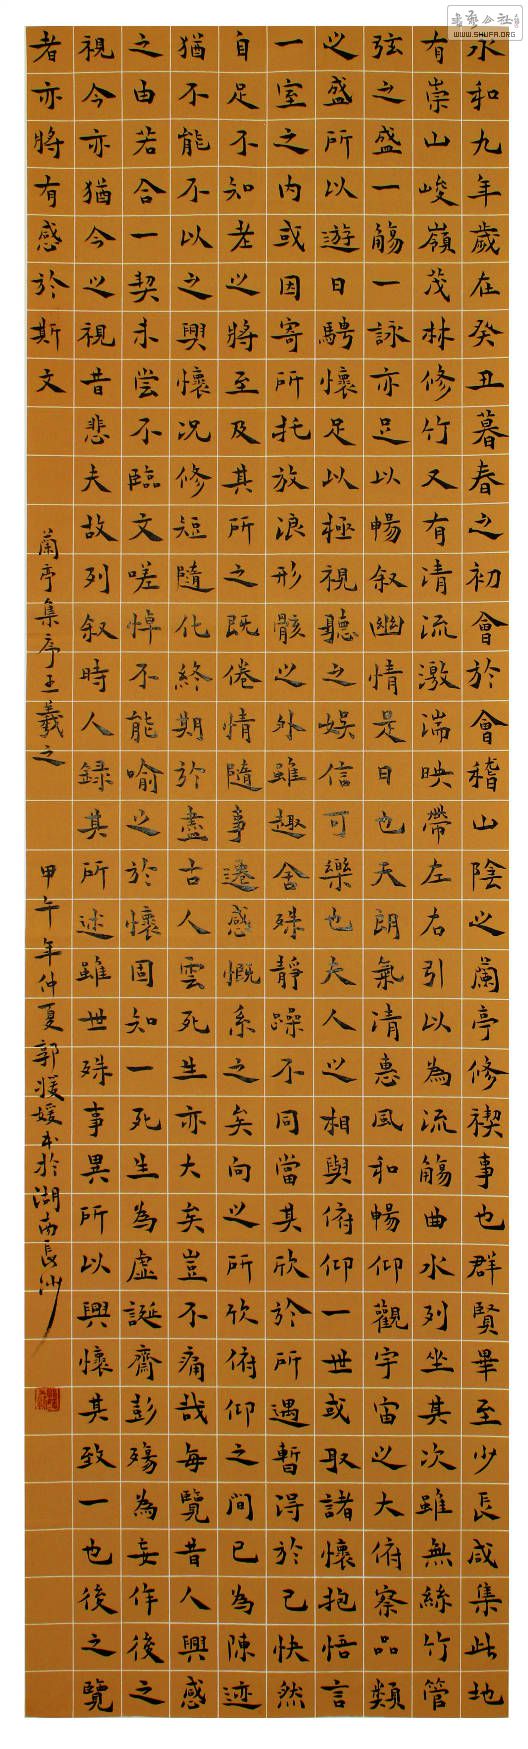 永和九年歲在癸丑暮春之初會於會稽山陰之蘭亭修禊事也群賢畢至少長咸集此地
有崇山峻嶺茂林修竹又有清流激湍映帶左右引以為流觴曲水列坐其次雖無絲竹管
弦之盛一觴一詠亦足以暢叙幽情是日也天朗氣清惠風和暢仰觀宇宙之大俯察品類
之盛所以遊日騁懷足以極視聽之娛信可樂也夫人之相與俯仰一世或取諸懷抱悟言
一室之內或因寄所托放浪形骸之外雖趣舍殊靜躁不同當其欣於所遇暫得於己快然
自足不知老之將至及其所之既倦情隨事遷感慨系之矣向之所欣俯仰之間已為陳迹
猶不能不以之興懷况修短隨化終期於盡古人雲死生亦大矣豈不痛哉每覽昔人興感
之由若合一契未嘗不臨文嗟悼不能喻之於懷固知一死生為虛誕齊彭殤為妄作後之
視今亦猶今之視昔悲夫故列叙時人録其所述雖世殊事異所以興懷其致一也後之覽
者亦將有感於斯文
蘭亭集序王羲之 甲午年仲夏郭媛媛书於湖南長沙
书艺公社
WWW.SHUFA.ORG